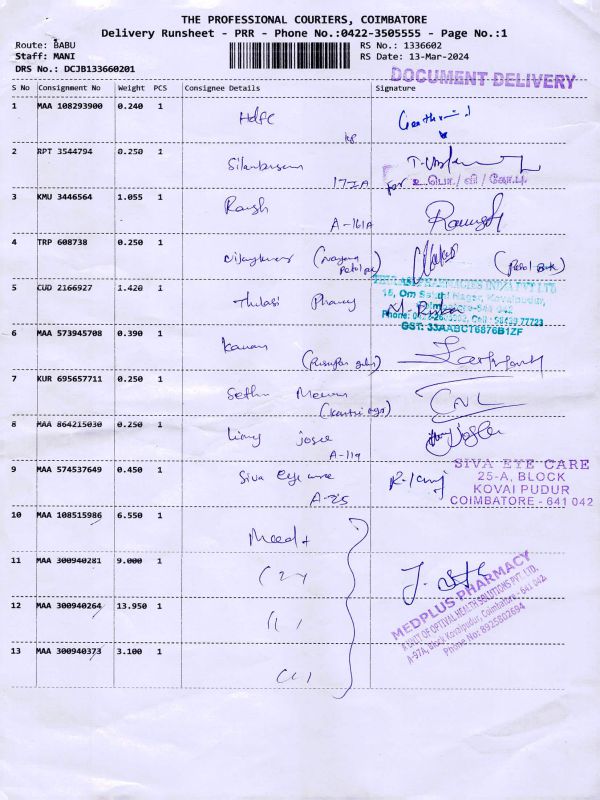 THE PROFESSIONAL COURIERS, COIMBATORE
Delivery Runsheet - PRR - Phone No.:0422-3505555 - Page No.:1
Route: BABU
Staff: MANI
DRS No.: DCJB133660201
RS No.: 1336602
RS Date: 13-Mar-2024
DOCUMENT DELIVERY
S No Consignment No Weight PCS Consignee Details Signature
1 MAA 108293900 0.240 1 Hdfc
2 RPT 3544794 0.250 1
172A For உ.பொ./வி/கோ.டி
3 KMU 3446564 1.055 1
A-161A
4 TRP 608738 0.250 1 Vijaykumar
5 CUD 2166927 1.420 1 Thulasi Pharmacy
THULASI PHARMACIES INDIA PVT LTD
15, Om Sakthi Nagar, Kovaipudur,
Coimbatore-641 042
GST: 33AABCT6876B1ZF
6 MAA 573945708 0.390 1 Kannan
7 KUR 695657711 0.250 1 Sethu
8 MAA 864215030 0.250 1 Liny josee
A-119
9 MAA 574537649 0.450 1 Siva eye care
A-25
SIVA EYE CARE
25-A, BLOCK
KOVAI PUDUR
COIMBATORE - 641 042
10 MAA 108515986 6.550 1 Med+
11 MAA 300940281 9.000 1
12 MAA 300940264 13.950 1
13 MAA 300940373 3.100 1
MEDPLUS PHARMACY
A UNIT OF OPTIVAL HEALTH SOLUTIONS PVT. LTD.
A-97A, block Kovaipudur, Coimbatore - 641 042
Phone No: 8925802694